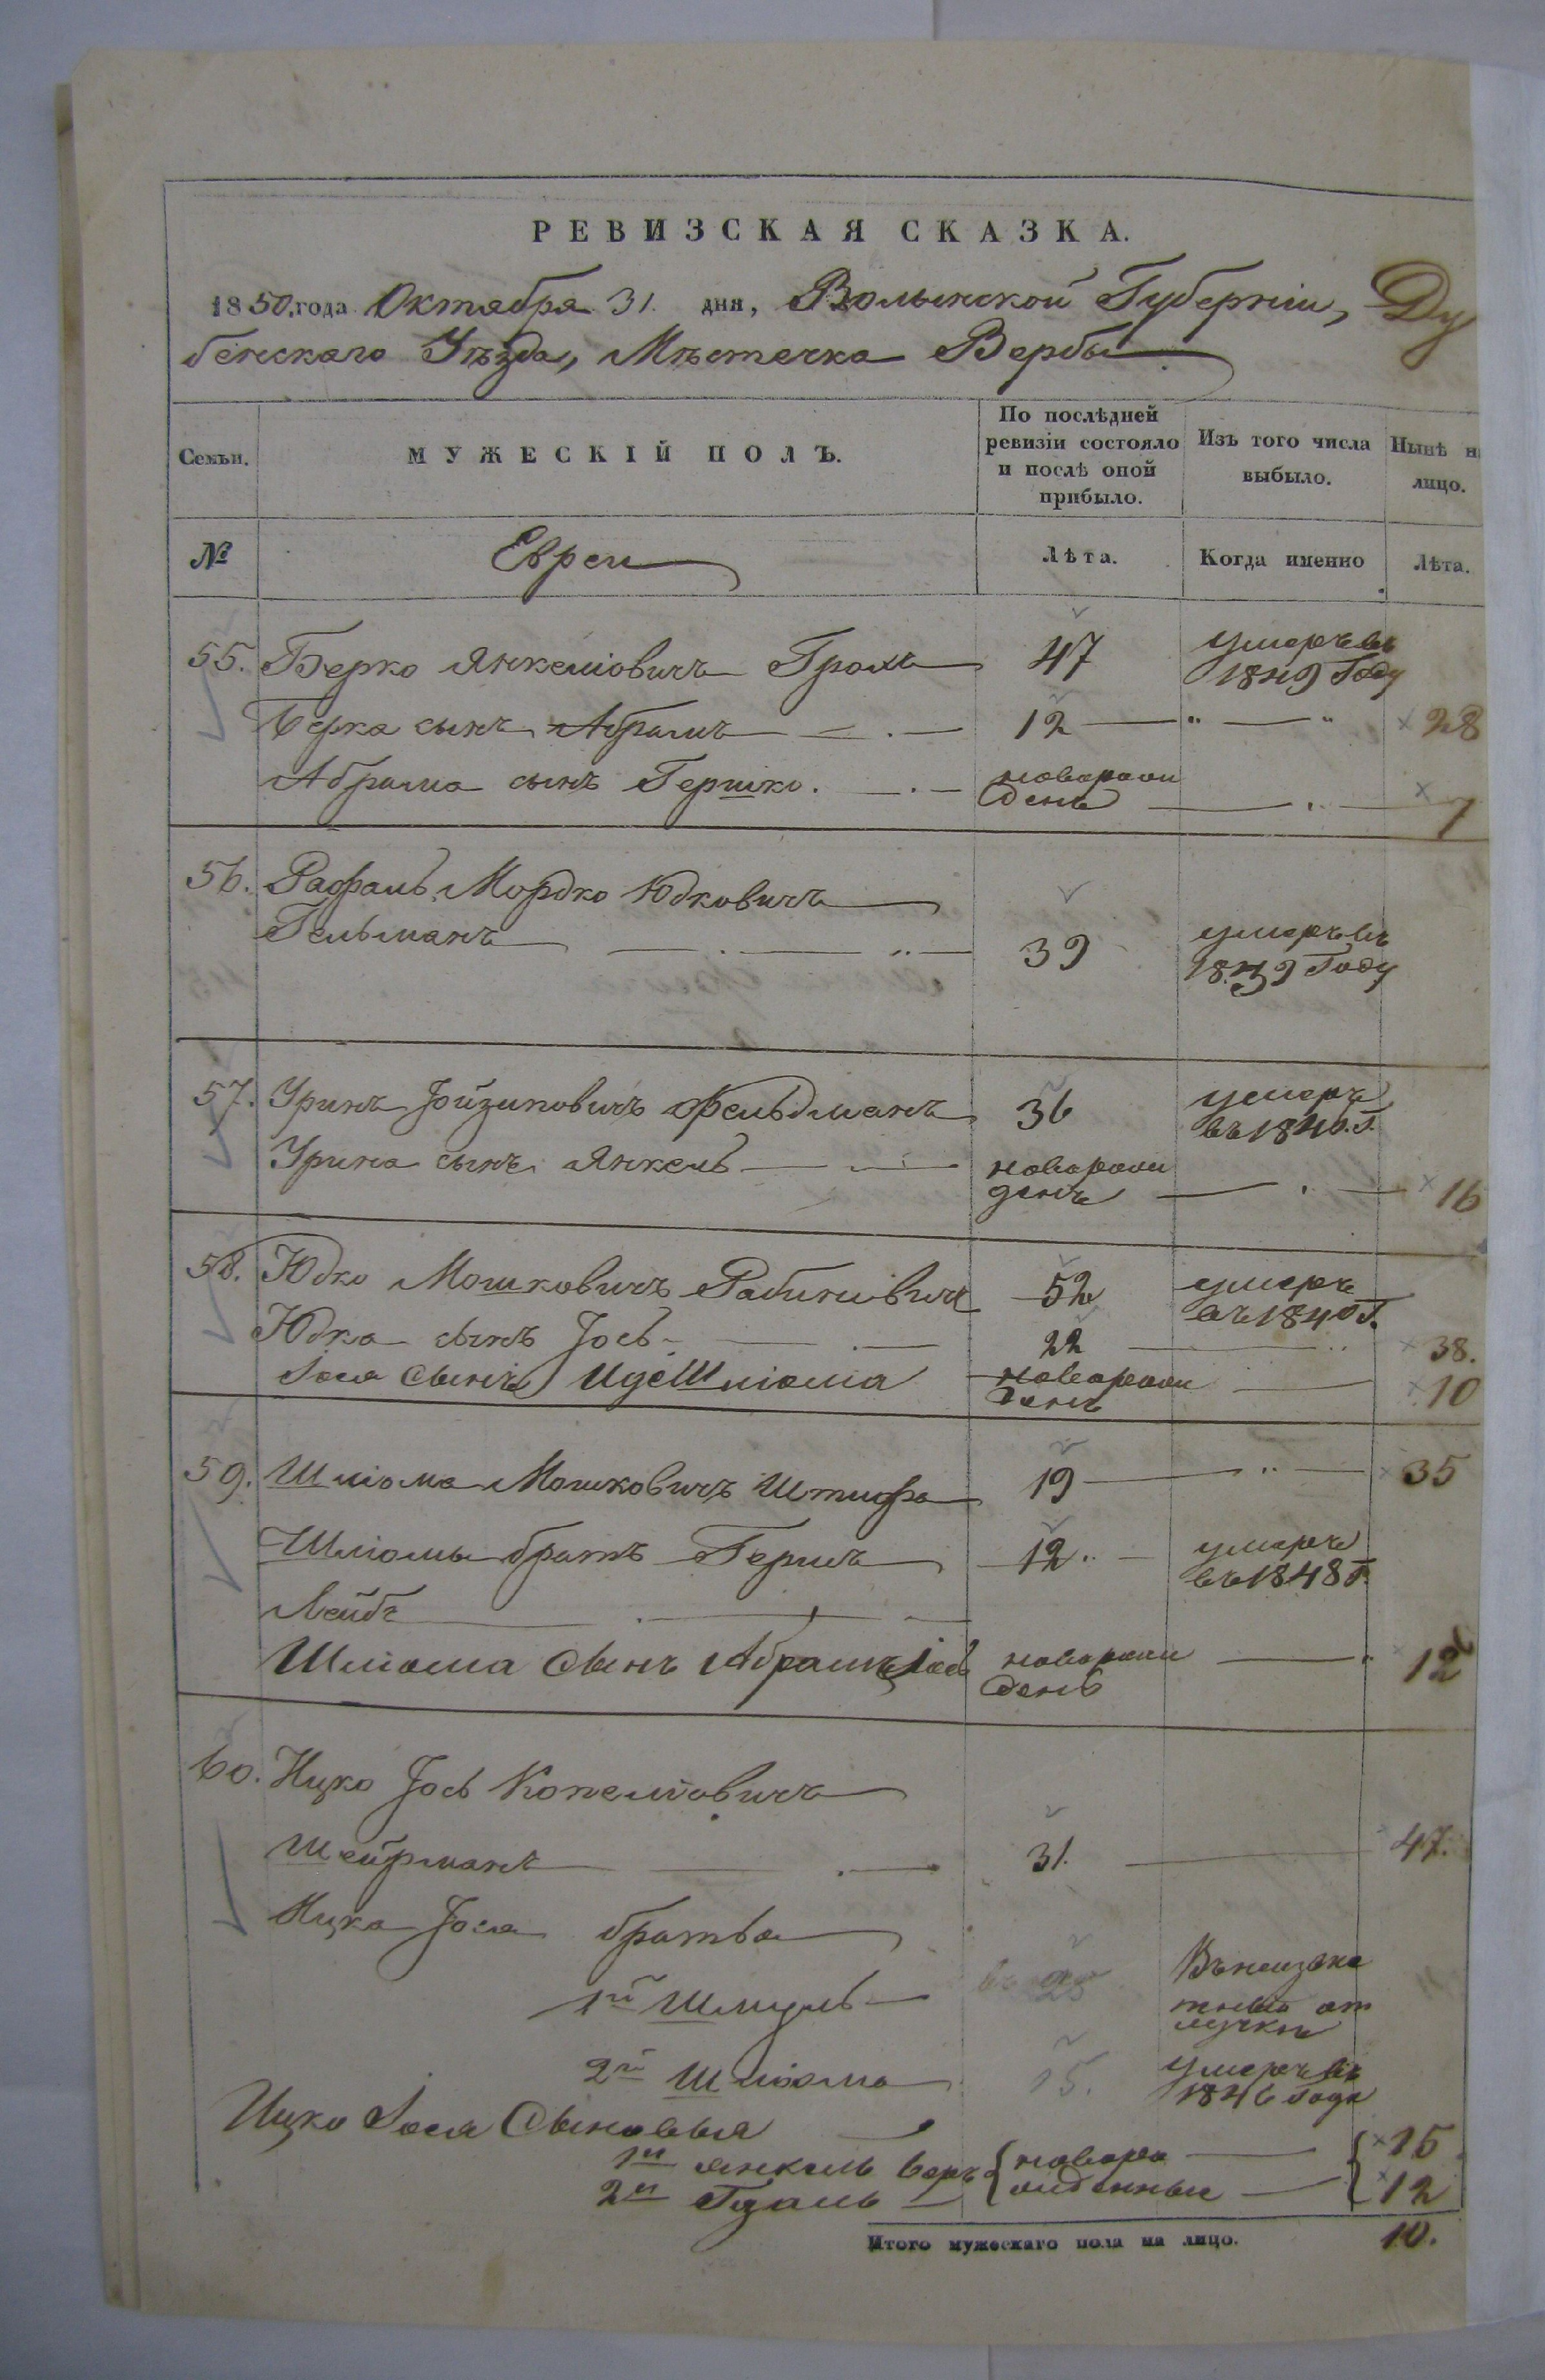 РЕВИЗСКАЯ СКАЗКА.
1850 года Октября 31. дня, Волынской Губерніи, Ду
бенскаго Уѣзда, Мѣстечка Вербы
Семьи.
МУЖЕСКІЙ ПОЛЪ.
По послѣдней ревизіи состояло и послѣ оной прибыло.
Изъ того числа выбыло.
Нынѣ н лицо.
№
Евреи
Лѣта.
Когда именно
Лѣта.
55. Берко Янкеліовичъ Громъ 47 умеръ въ 1849 Году
Берка сынъ Абрамъ 12 " " 28
Абрама сынъ Гершко. новорожденъ 7
56. Рафаль Мордко Юдковичъ
Гельманъ 39 умеръ въ Году
57. Уринъ Іойзиповичъ Фельдманъ 36 умеръ въ 1840. Г.
Урина сынъ Янкель новорожденъ 16
58. Юдко Мошковичъ Рабиновичъ 52 умеръ въ 1840 Г.
Юдка сынъ Іось 22 38.
Іося Сынъ Иде Шліома новорожденъ 10
59. Шліома Мошковичъ Штифа 19 35
Шліомы братъ Гершъ 12 умеръ въ 1848 Г.
Лейба
Шліома Сынъ Абрамъ Іось новорожденъ 12
60. Ицко Іось Копеліовичъ
Шейрманъ 31. 47.
Ицка Іося братья
1й Шмуль 25 Въ неизвѣстной отлучкѣ
2й Шліома 15. умеръ въ 1846 Года
Ицко Іося Сыновья
1й Янкель Беръ новоро 15
2й Гдаль жденные 12
Итого мужескаго пола на лицо. 10.